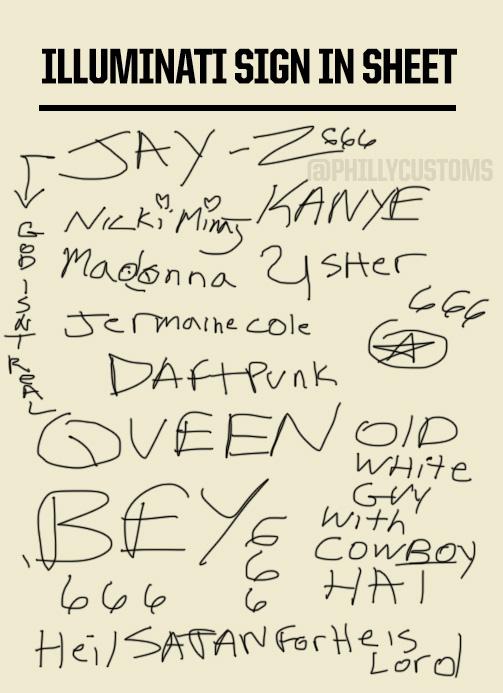 ILLUMINATI SIGN IN SHEET
JAY-Z 666
@PHILLYCUSTOMS
GOD ISNT REAL
Nicki Minaj KANYE
Madonna Usher
666
Jermaine cole
DAFtPunk
QUEEN
BEY
OlD
WHite
GUY
With
COWBOY
HAT
666
666
Heil SATAN For He is
Lord